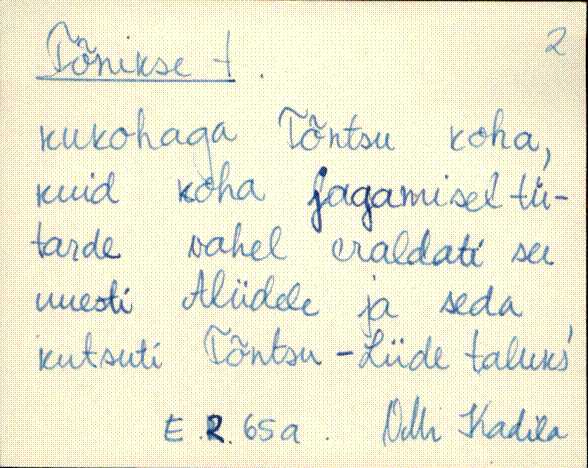 Tõnikse t. 2
kukohaga Tõntsu koha,
kuid koha jagamisel tü-
tarde vahel eraldati see
uuesti Aliidele ja seda
kutsuti Tõntsu-Liide taluks'
E.R. 65a. Olli Kadila